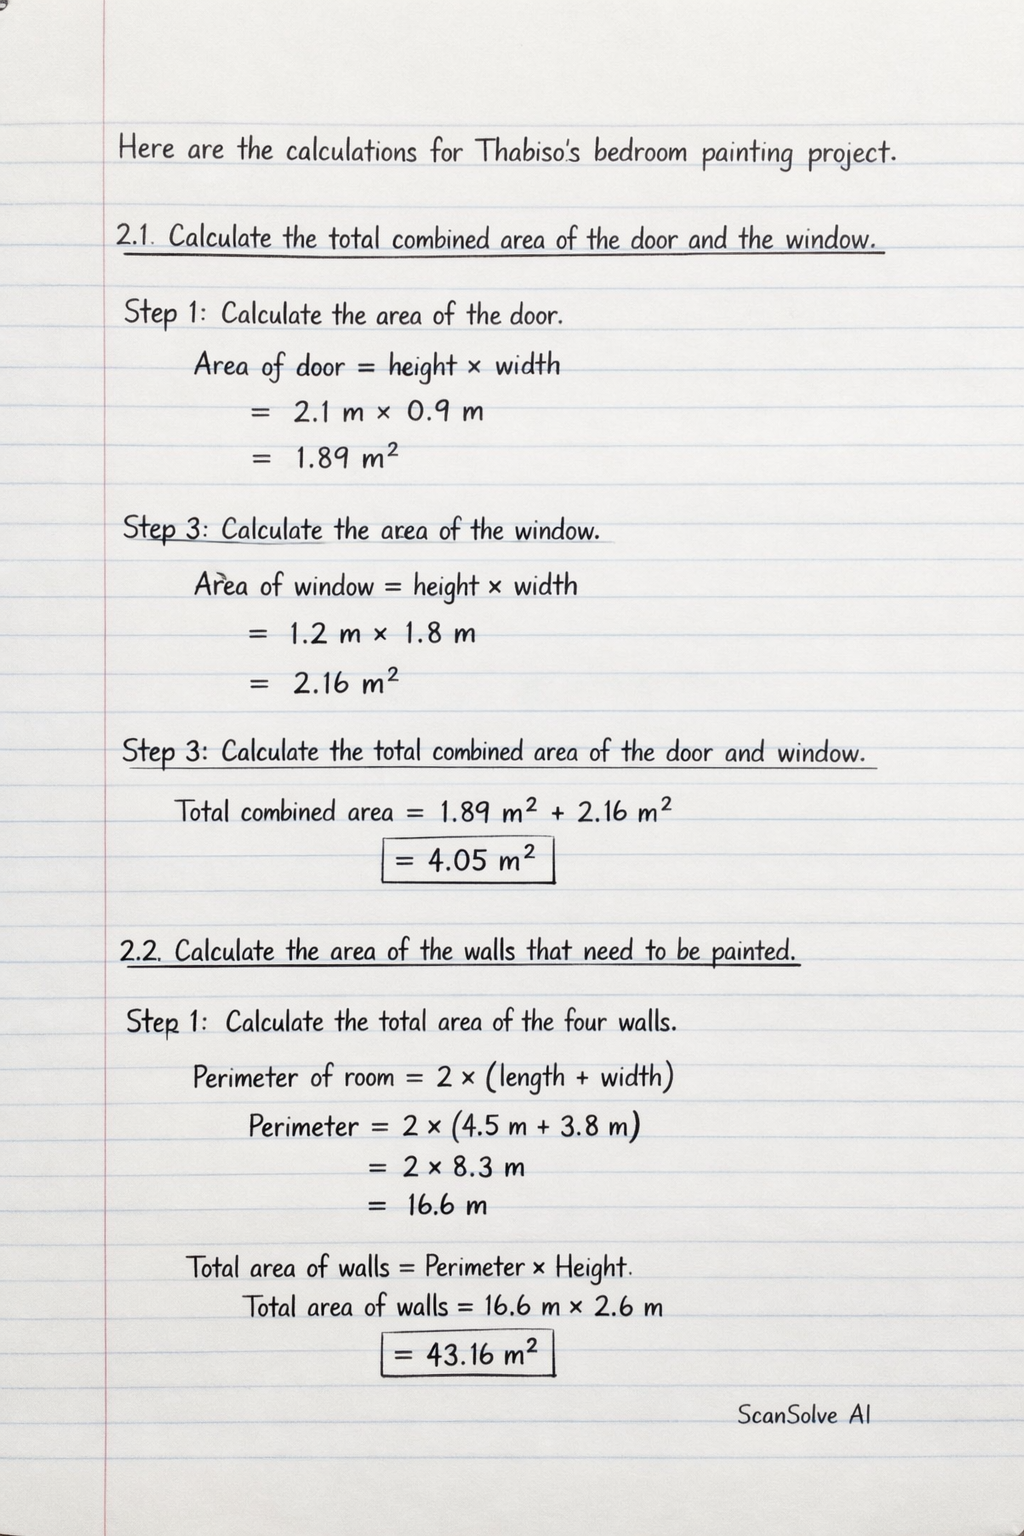 Here are the calculations for Thabiso's bedroom painting project.
2.1. Calculate the total combined area of the door and the window.
Step 1: Calculate the area of the door.
Area of door = height × width
= 2.1 m × 0.9 m
= 1.89 m²
Step 3: Calculate the area of the window.
Area of window = height × width
= 1.2 m × 1.8 m
= 2.16 m²
Step 3: Calculate the total combined area of the door and window.
Total combined area = 1.89 m² + 2.16 m²
= 4.05 m²
2.2. Calculate the area of the walls that need to be painted.
Step 1: Calculate the total area of the four walls.
Perimeter of room = 2 × (length + width)
Perimeter = 2 × (4.5 m + 3.8 m)
= 2 × 8.3 m
= 16.6 m
Total area of walls = Perimeter × Height.
Total area of walls = 16.6 m × 2.6 m
= 43.16 m²
ScanSolve AI